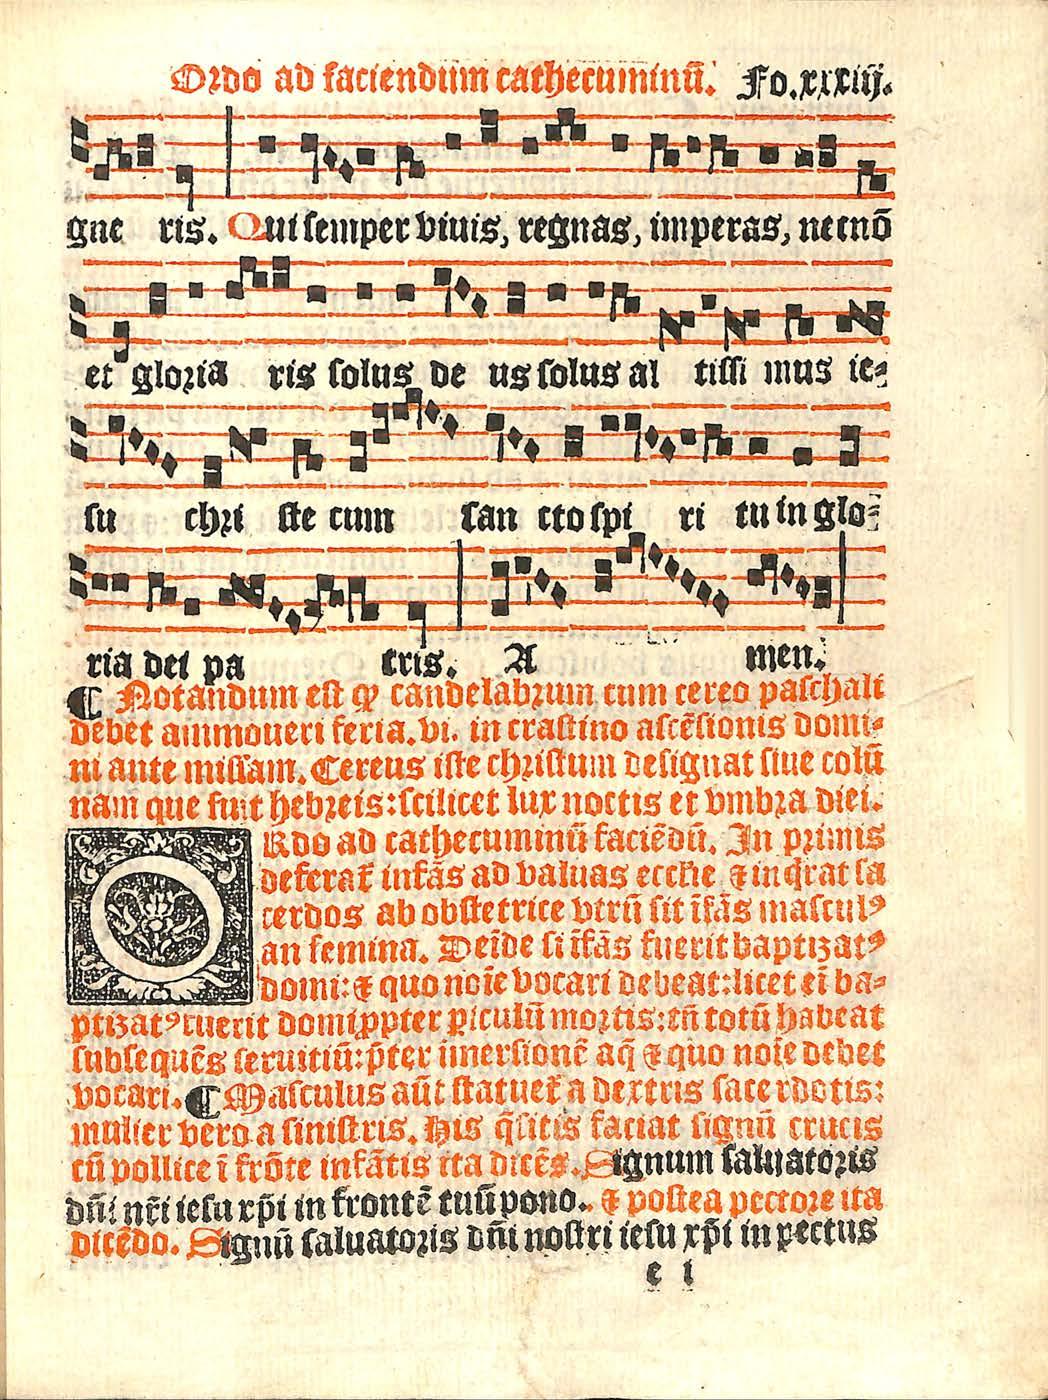 Ordo ad faciendum cathecuminū. Fo.xxxiij.
gne ris. Qui semper viuis, regnas, imperas, necnō
et gloria ris solus de us solus al tissi mus ie-
su chri ste cum san cto spi ri tu in glo-
ria dei pa tris. A men.
¶ Notandum est ꝙ candelabrum cum cereo paschali
debet ammoueri feria. vi. in crastino ascēsionis domi-
ni ante missam. Cereus iste christum designat siue colū
nam que fuit hebreis: scilicet lux noctis et vmbra diei.
ORdo ad cathecuminū faciēdū. In primis
deferat̉ infās ad valuas ecclie ⁊ inq̄rat sa
cerdos ab obstetrice vtrū sit īfās mascul⁹
an femina. Deīde si īfās fuerit baptizat⁹
domi: ⁊ quo noīe vocari debeat: licet eī ba-
ptizat⁹ fuerit domi ꝓpter piculū mortis: tn̄ totū habeat
subsequēs seruitiū: p̄ter imersionē aq̄ ⁊ quo noīe debet
vocari. ¶ Masculus aūt statuet̉ a dextris sacerdotis:
mulier vero a sinistris. His q̄sitis faciat signū crucis
cū pollice ī frōte infātis ita dicēs. Signum saluatoris
dn̄i nr̄i iesu xp̄i in frontē tuū pono. ⁊ postea pectore ita
dicēdo. Signū saluatoris dn̄i nostri iesu xp̄i in pectus
e i